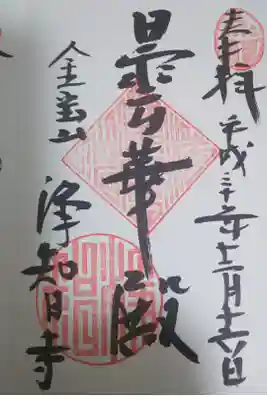 奉拝 平成三十年十二月十六日
曇華殿
金宝山 浄智寺